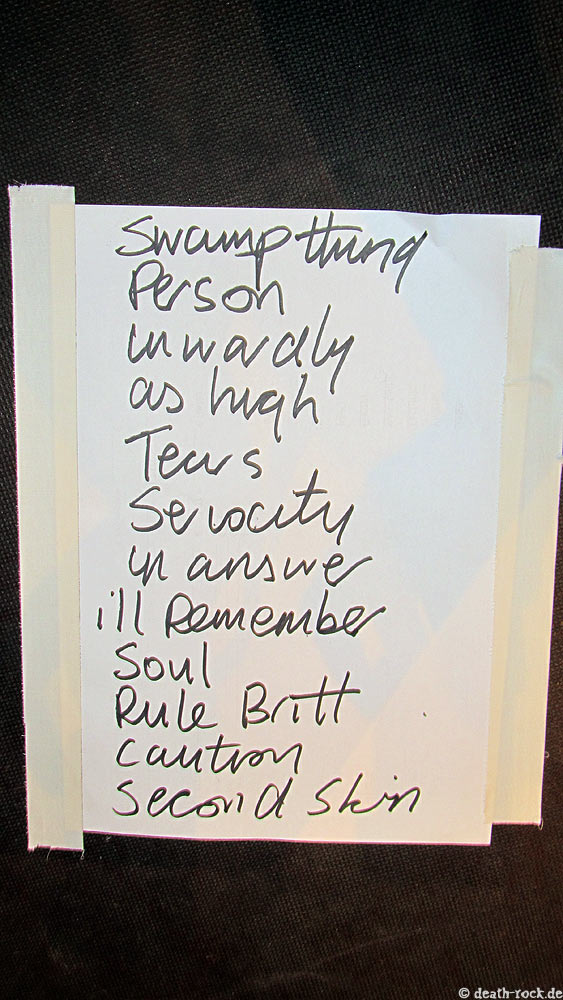 Swampthing
Person
inwardly
as high
Tears
Serocity
in answer
ill Remember
Soul
Rule Britt
caution
Second Skin
© death-rock.de